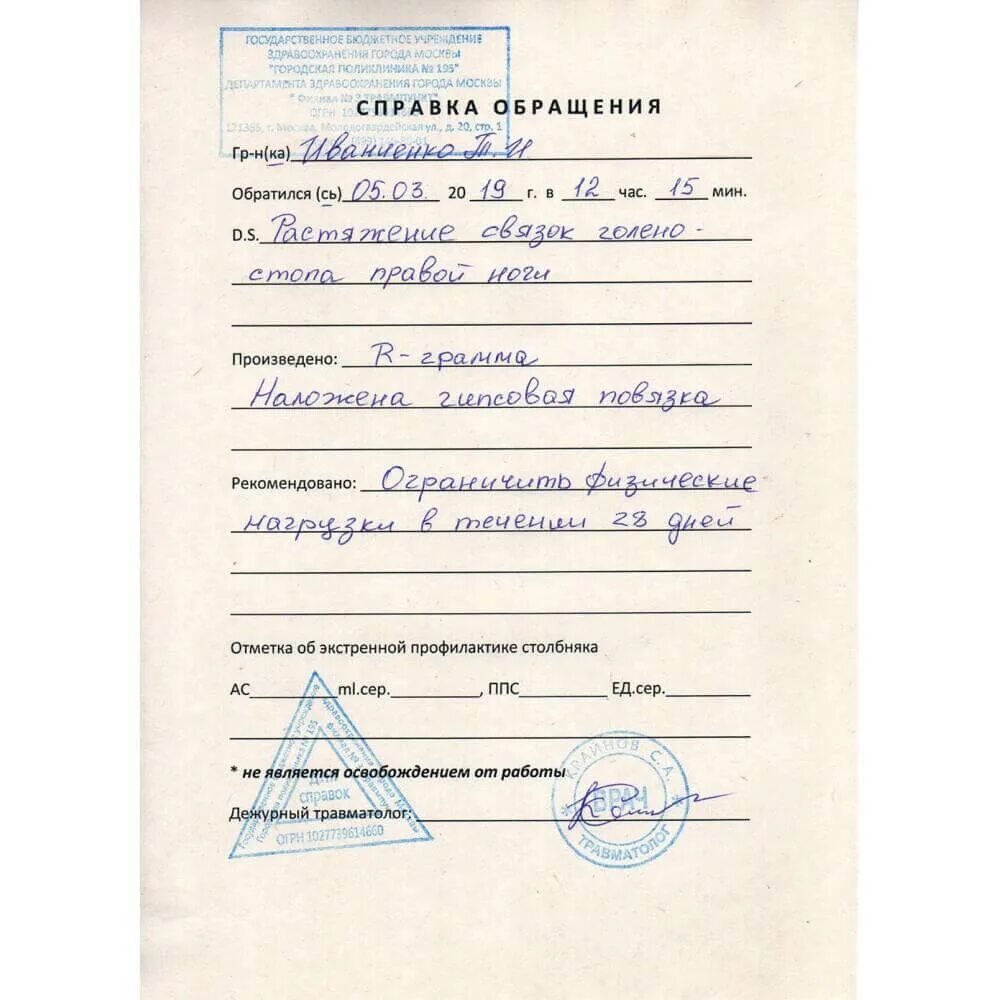 ГОСУДАРСТВЕННОЕ БЮДЖЕТНОЕ УЧРЕЖДЕНИЕ
ЗДРАВООХРАНЕНИЯ ГОРОДА МОСКВЫ
"ГОРОДСКАЯ ПОЛИКЛИНИКА № 195"
ДЕПАРТАМЕНТА ЗДРАВООХРАНЕНИЯ ГОРОДА МОСКВЫ
" Филиал № 3 ТРАВМПУНКТ"
СПРАВКА ОБРАЩЕНИЯ
ОГРН
121355, г. Москва, Молодогвардейская ул., д. 20, стр. 1
Гр-н(ка) Иванченко Т.И.
Обратился (сь) 05.03. 20 19 г. в 12 час. 15 мин.
D.S. Растяжение связок голено-
стопа правой ноги
Произведено: R-грамма
Наложена гипсовая повязка
Рекомендовано: Ограничить физические
нагрузки в течении 28 дней
Отметка об экстренной профилактике столбняка
АС ml.сер. , ППС ЕД.сер.
* не является освобождением от работы
Дежурный травматолог:
Государственное бюджетное учреждение
здравоохранения города Москвы
Городская поликлиника № 195
филиал № 3 травмпункт
Для
справок
ОГРН 1027739614660
КРАЙНОВ С.А.
ВРАЧ
ТРАВМАТОЛОГ